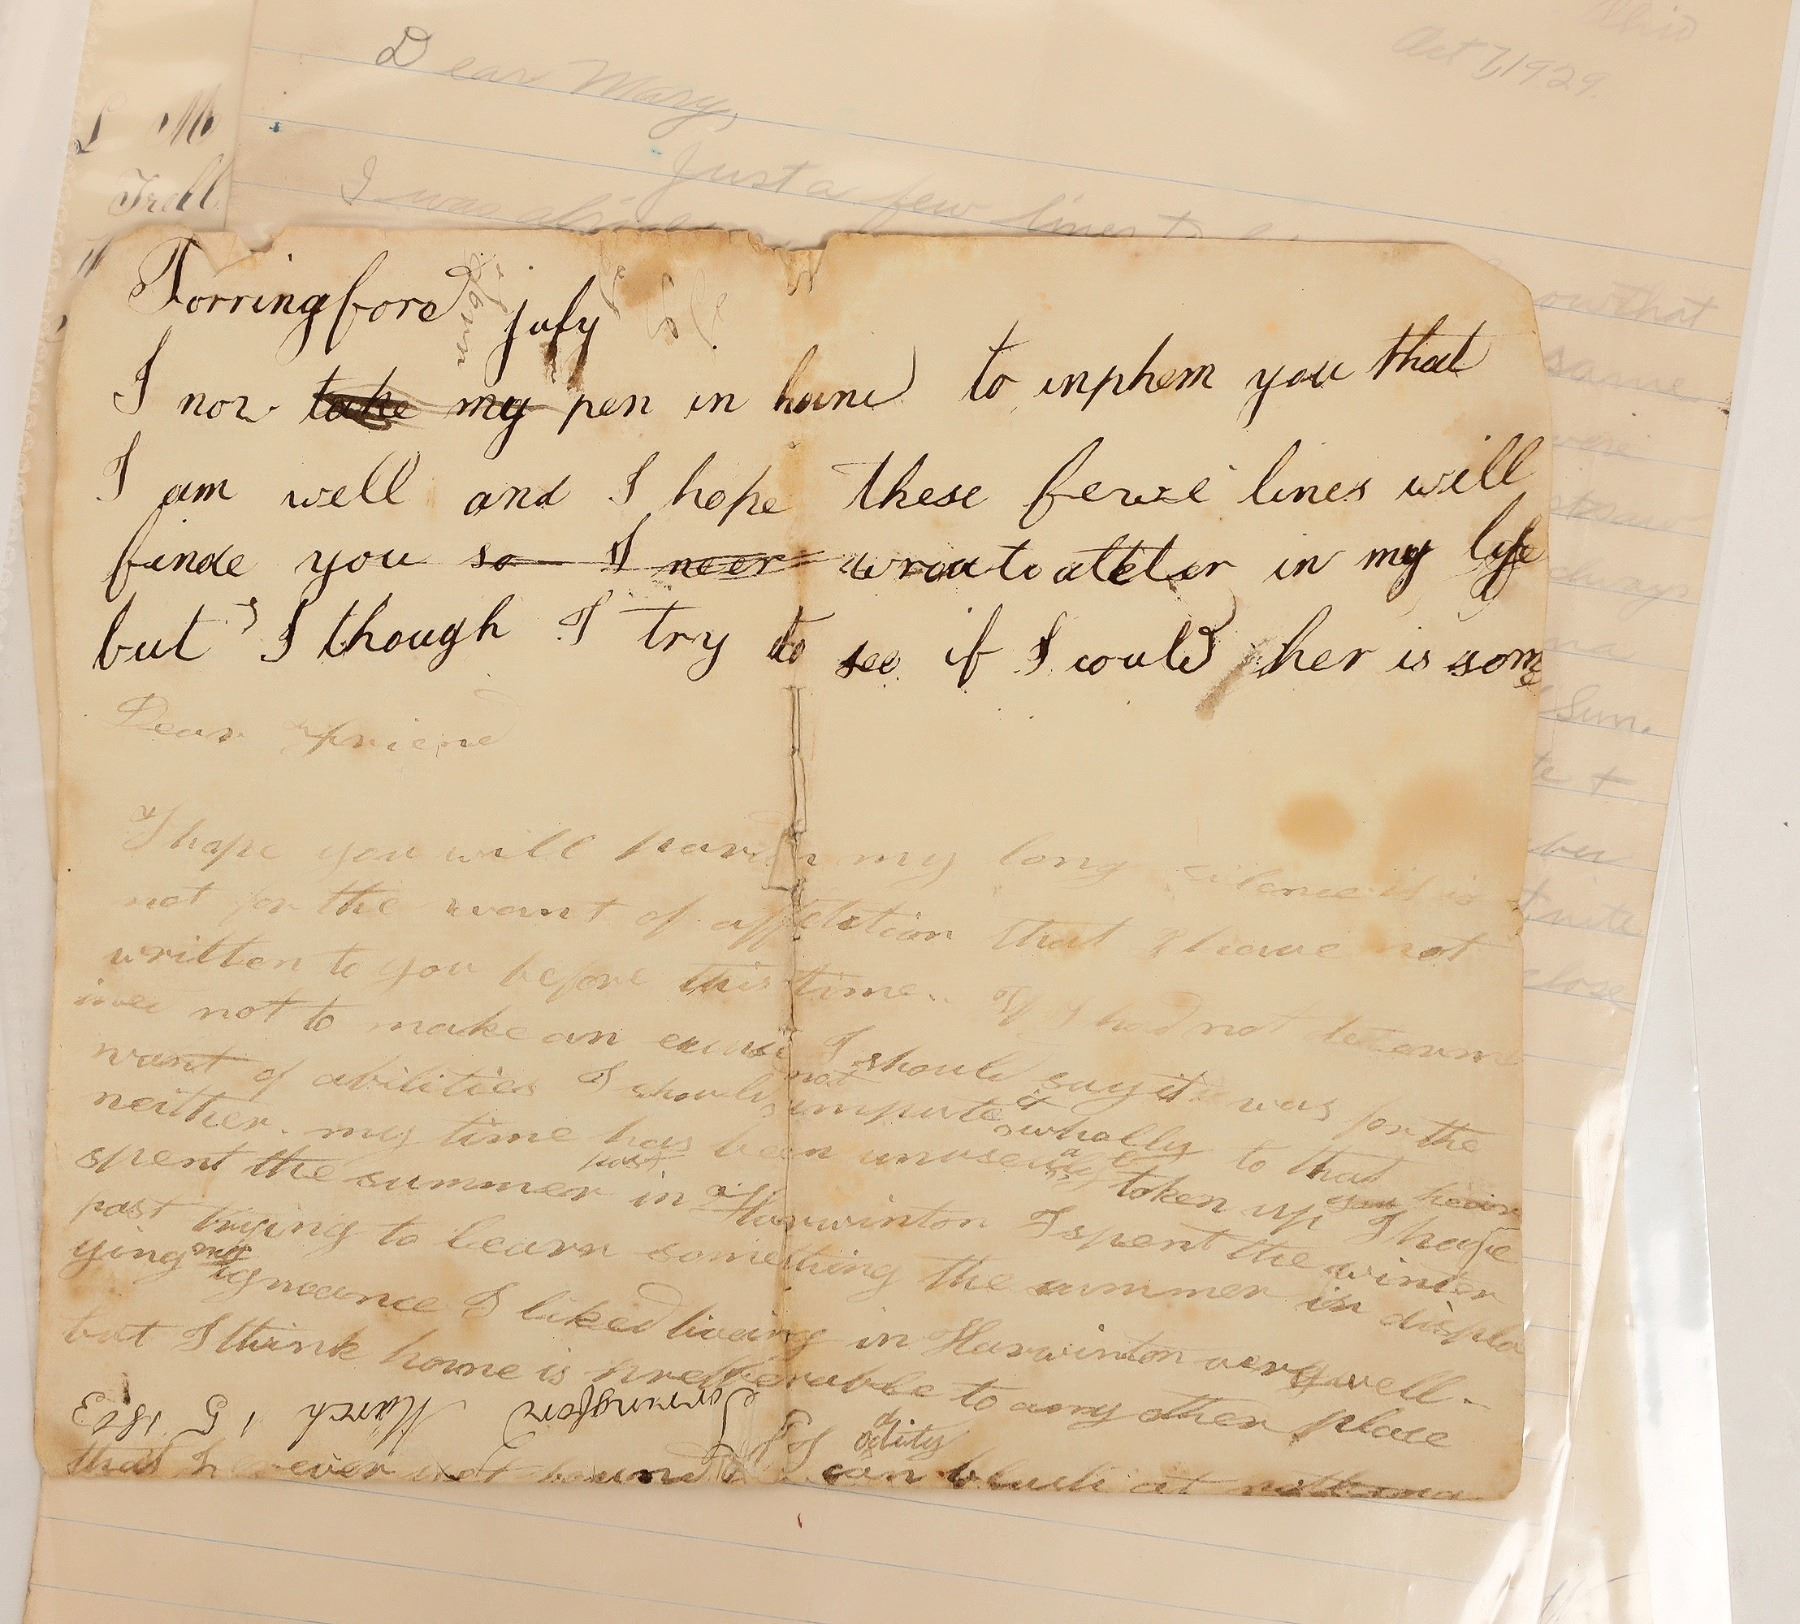 Ohio
Oct 7, 1929.
Dear Mary,
Just a few lines to
I was
L M
Troll
owthat
same
were
always
Sun.
te +
ber
close
Torringford july
I now take my pen in hand to inphem you that
I am well and I hope these fewe lines will
finde you so I neer wroat a letter in my life
but I though I try to see if I could her is some
Dear friend
I hope you will pardon my long silence it is
not for the want of affection that I have not
written to you before this time. If I had not determ
ined not to make an excuse I should say it was for the
want of abilities I should not impute it wholly to that
neither. my time has been unusually taken up I have
spent the summer past in Harwinton I spent the winter
past trying to learn something the summer in displa
ying my ignorance I liked living in Harwinton very well -
but I think home is preferable to any other place
that I ever yet found can blush at nothing
oddity
Torringford March 15 1813